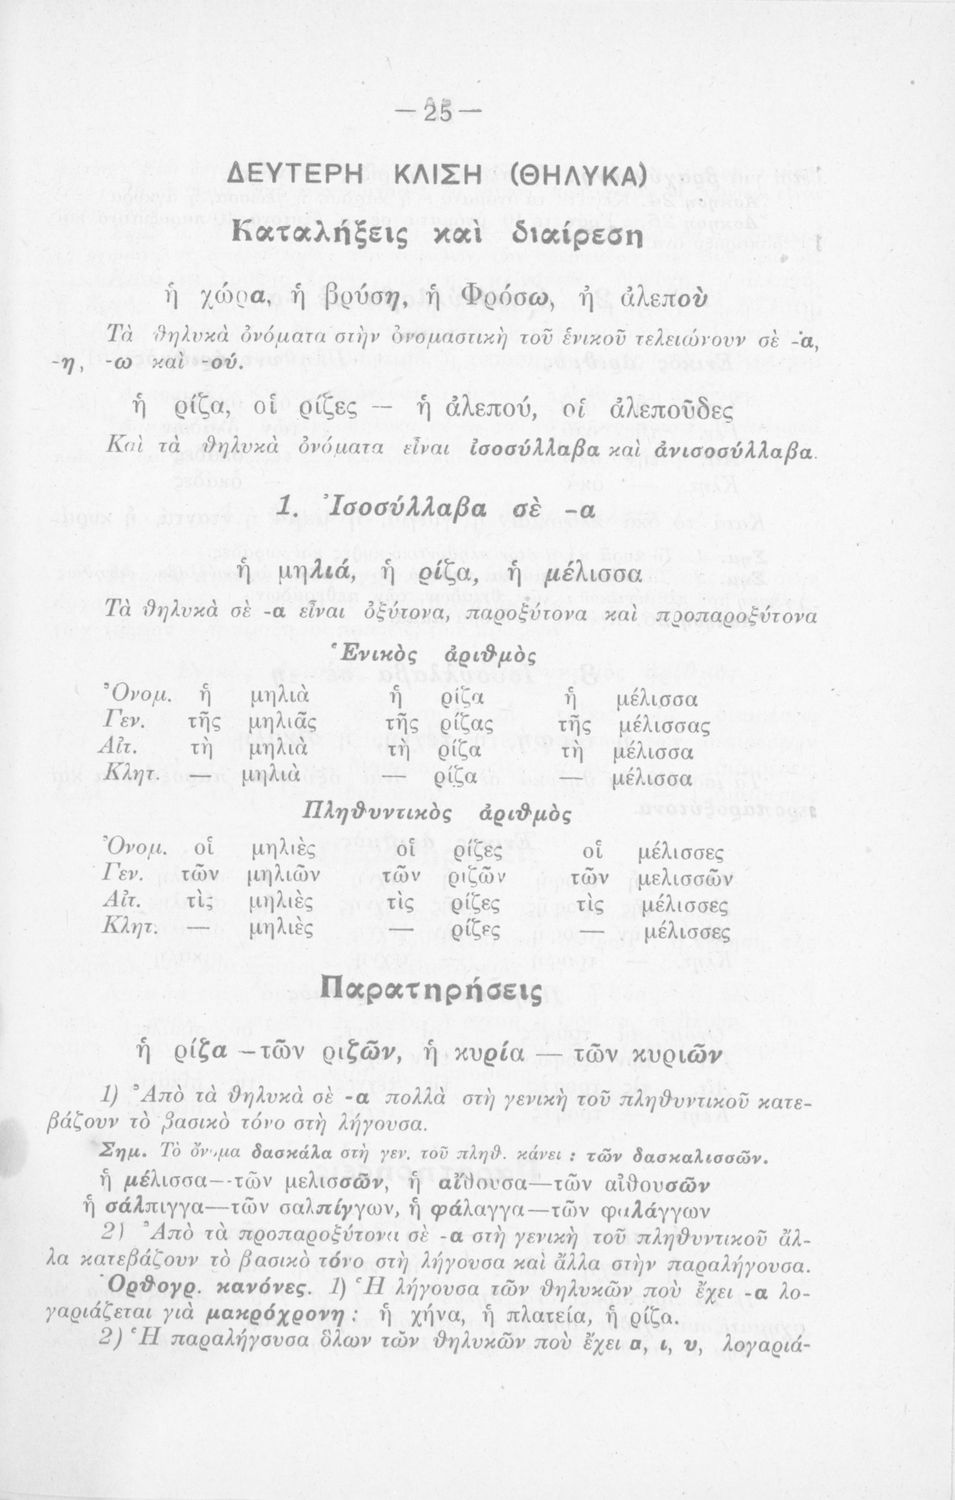 — 25 —
ΔΕΥΤΕΡΗ ΚΛΙΣΗ (ΘΗΛΥΚΑ)
Καταλήξεις καὶ διαίρεση
ἡ χώρα, ἡ βρύση, ἡ Φρόσω, ἡ ἀλεποὺ
Τὰ θηλυκὰ ὀνόματα στὴν ὀνομαστικὴ τοῦ ἑνικοῦ τελειώνουν σὲ -α,
-η, -ω καὶ -ού.
ἡ ρίζα, οἱ ρίζες — ἡ ἀλεπού, οἱ ἀλεποῦδες
Καὶ τὰ θηλυκὰ ὀνόματα εἶναι ἰσοσύλλαβα καὶ ἀνισοσύλλαβα.
1. Ἰσοσύλλαβα σὲ -α
ἡ μηλιά, ἡ ρίζα, ἡ μέλισσα
Τὰ θηλυκὰ σὲ -α εἶναι ὀξύτονα, παροξύτονα καὶ προπαροξύτονα
Ἑνικὸς ἀριθμὸς
Ὀνομ. ἡ μηλιὰ ἡ ρίζα ἡ μέλισσα
Γεν. τῆς μηλιᾶς τῆς ρίζας τῆς μέλισσας
Αἰτ. τὴ μηλιὰ τὴ ρίζα τὴ μέλισσα
Κλητ. — μηλιὰ — ρίζα — μέλισσα
Πληθυντικὸς ἀριθμὸς
Ὀνομ. οἱ μηλιὲς οἱ ρίζες οἱ μέλισσες
Γεν. τῶν μηλιῶν τῶν ριζῶν τῶν μελισσῶν
Αἰτ. τὶς μηλιὲς τὶς ρίζες τὶς μέλισσες
Κλητ. — μηλιὲς — ρίζες — μέλισσες
Παρατηρήσεις
ἡ ρίζα — τῶν ριζῶν, ἡ κυρία — τῶν κυριῶν
1) Ἀπὸ τὰ θηλυκὰ σὲ -α πολλὰ στὴ γενικὴ τοῦ πληθυντικοῦ κατε-
βάζουν τὸ βασικὸ τόνο στὴ λήγουσα.
Σημ. Τὸ ὄνομα δασκάλα στὴ γεν. τοῦ πληθ. κάνει : τῶν δασκαλισσῶν.
ἡ μέλισσα—τῶν μελισσῶν, ἡ αἴθουσα—τῶν αἰθουσῶν
ἡ σάλπιγγα—τῶν σαλπίγγων, ἡ φάλαγγα—τῶν φαλάγγων
2) Ἀπὸ τὰ προπαροξύτονα σὲ -α στὴ γενικὴ τοῦ πληθυντικοῦ ἄλ-
λα κατεβάζουν τὸ βασικὸ τόνο στὴ λήγουσα καὶ ἄλλα στὴν παραλήγουσα.
Ὀρθογρ. κανόνες. 1) Ἡ λήγουσα τῶν θηλυκῶν ποὺ ἔχει -α λο-
γαριάζεται γιὰ μακρόχρονη : ἡ χήνα, ἡ πλατεία, ἡ ρίζα.
2) Ἡ παραλήγουσα ὅλων τῶν θηλυκῶν ποὺ ἔχει α, ι, υ, λογαριά-